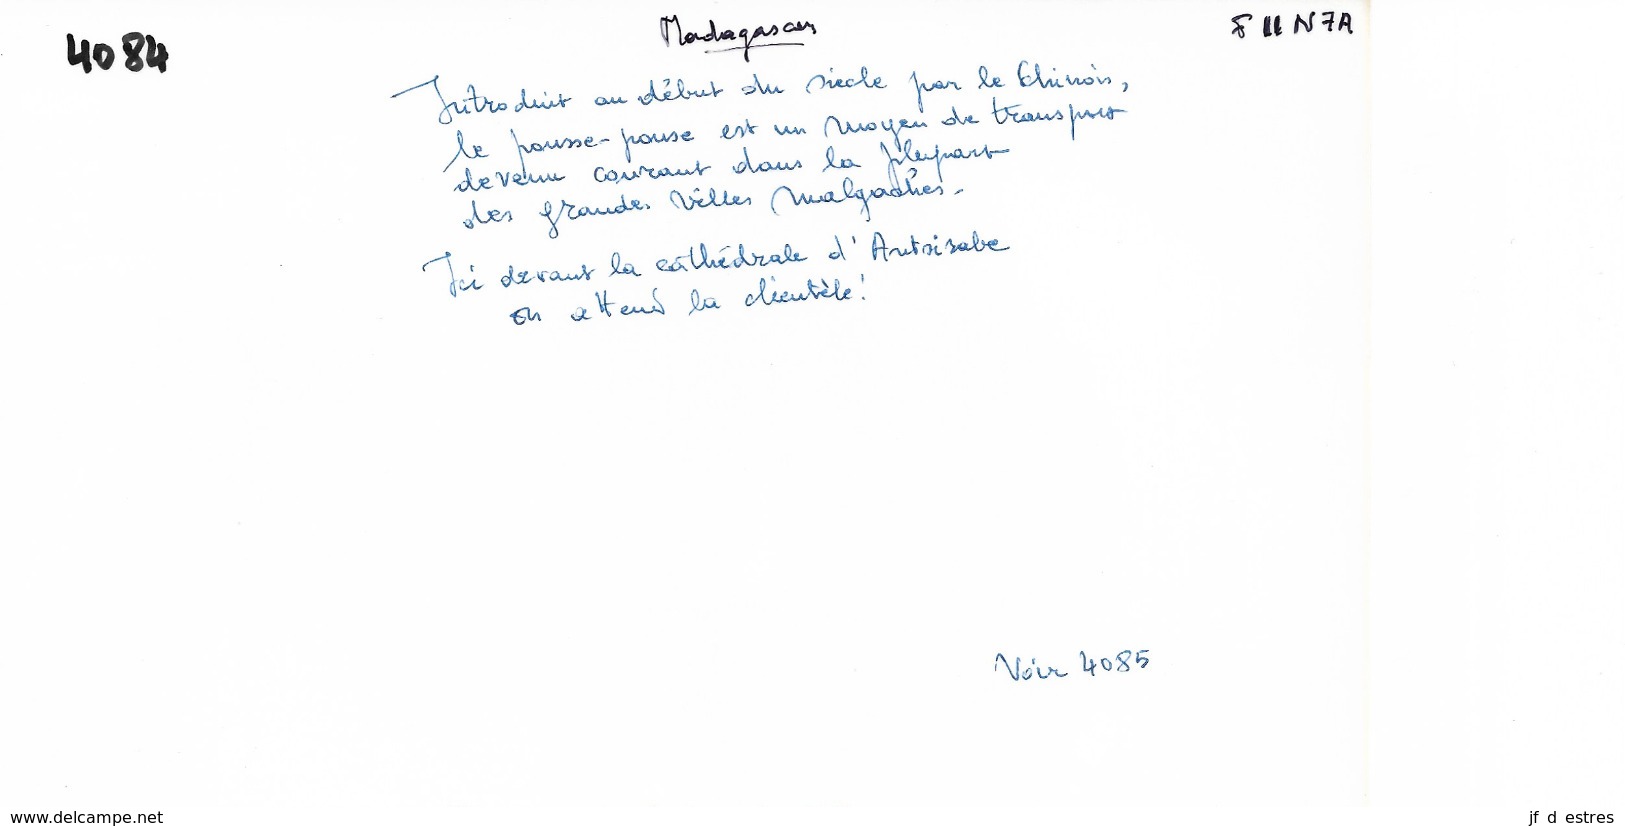 4084
Madagascar
F II N 7A
Introduit au début du siècle par le Chinois,
le pousse-pousse est un moyen de transport
devenu courant dans la plupart
des grandes villes malgaches.
Ici devant la cathédrale d'Antsirabe
on attend la clientèle!
Voir 4085
www.delcampe.net
jf d estres